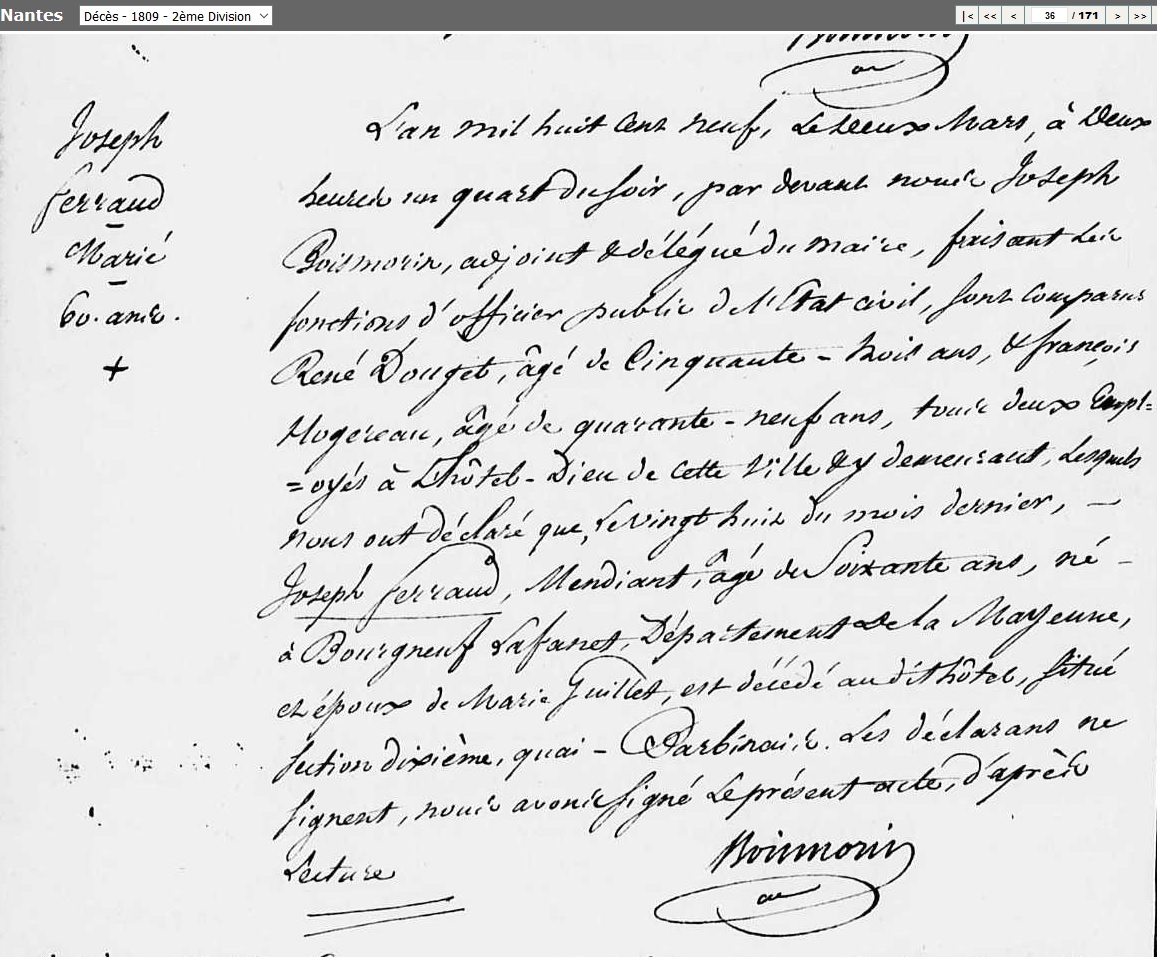 Nantes
Décès - 1809 - 2ème Division
|< << < 36 / 171 > >>
Boismorin
Joseph
ferraud
Marié
60. ans.
+
L'an mil huit cent neuf, le deux Mars, à deux
heures un quart du soir, par devant nous Joseph
Boismorin, adjoint & délégué du maire, faisant les
fonctions d'officier public de l'État civil, sont comparus
René Douget, âgé de Cinquante - trois ans, & françois
Hogereau, âgé de quarante - neuf ans, tous deux Empl=
=oyés à L'hôtel - Dieu de cette Ville & y demeurant, Lesquels
nous ont déclaré que, le vingt huit du mois dernier, —
Joseph ferraud, Mendiant, âgé de Soixante ans, né -
à Bourgneuf Lafaret, Département de la Mayenne,
et époux de Marie Guillet, est décédé audit hôtel, situé
section dixième, quai - Barbinais. Les déclarans ne
signent, nous avons signé le présent acte, d'après
Lecture
Boismorin